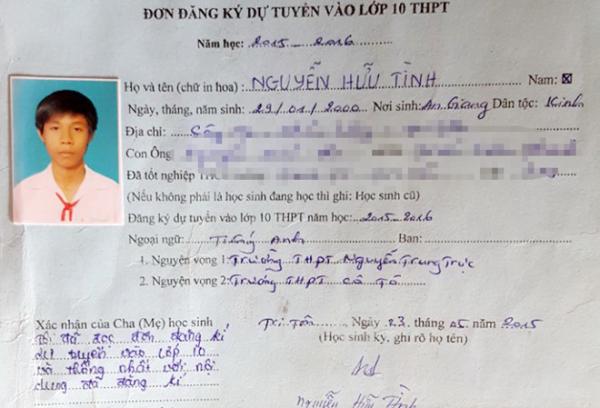 ĐƠN ĐĂNG KÝ DỰ TUYỂN VÀO LỚP 10 THPT
Năm học: 2015-2016
Họ và tên (chữ in hoa) NGUYỄN HỮU TÌNH Nam: ☒
Ngày, tháng, năm sinh: 29/01/2000 Nơi sinh: An Giang Dân tộc: Kinh
Địa chỉ:
Con Ông
Đã tốt nghiệp
(Nếu không phải là học sinh đang học thì ghi: Học sinh cũ)
Đăng ký dự tuyển vào lớp 10 THPT năm học: 2015-2016
Ngoại ngữ: Tiếng Anh Ban:
1. Nguyện vọng 1: Trường THPT Nguyễn Trung Trực
2. Nguyện vọng 2: Trường THPT Cô Tô
Xác nhận của Cha (Mẹ) học sinh
Tôi đã đọc đơn đăng kí
dự tuyển vào lớp 10
và thống nhất với nội
dung đã đăng kí
Tri Tôn, Ngày 23. tháng 05. năm 2015
(Học sinh ký, ghi rõ họ tên)
Nguyễn Hữu Tình